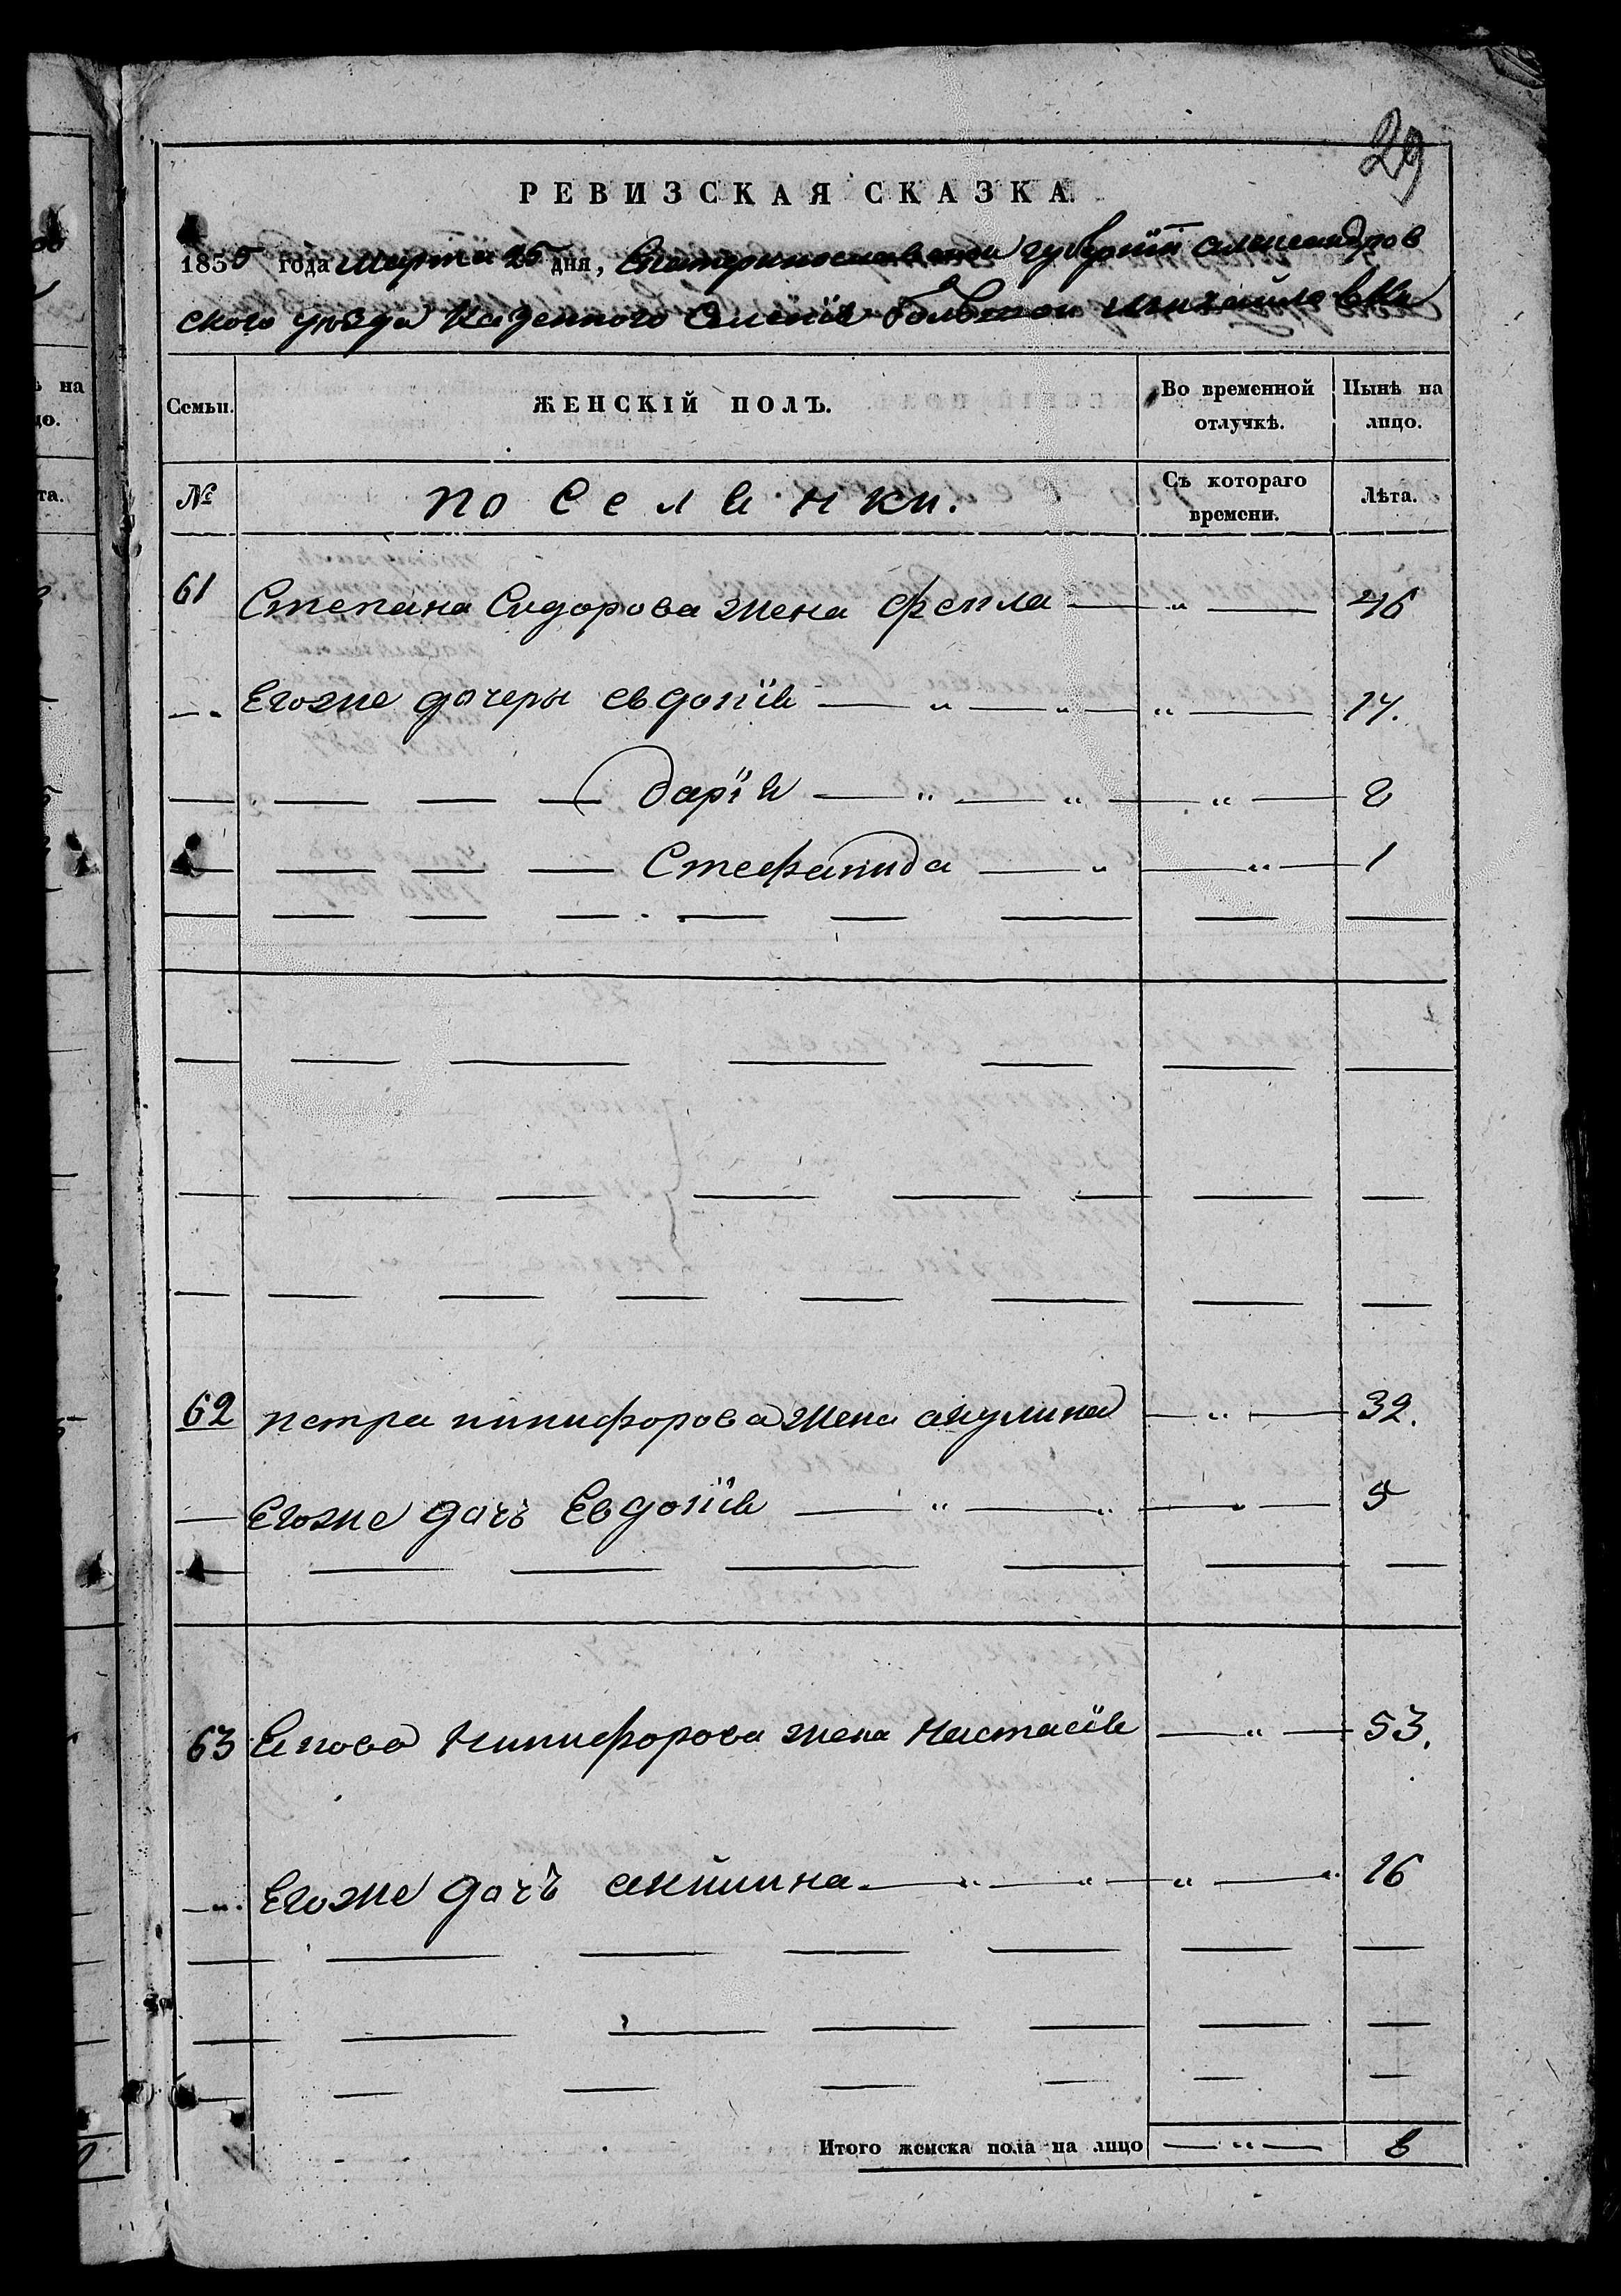 29
РЕВИЗСКАЯ СКАЗКА.
1855 года марта 25 дня, Екатеринославской губерніи александров
ского уѣзда Казенного Селенія большой михайловки
Семьи. ЖЕНСКІЙ ПОЛЪ. Во временной отлучкѣ. Нынѣ на лицо.
№ поселянки. Съ котораго времени. Лѣта.
61 Степана Сидорова жена фекла — " — 46
— Егоже дочеры евдокія — " — " — " — 14.
— — — — дарія — " — " — " — 8
— — — — Стефанида — " — " — 1
62 петра никифорова жена акулина — " — 32.
— Егоже дочъ Евдокія — " — " — " — 5
63 Якова Никифорова жена Настасія — " — 53.
— " Егоже дочъ акилина — " — " — " — " 16
Итого женска пола на лицо — " — 8